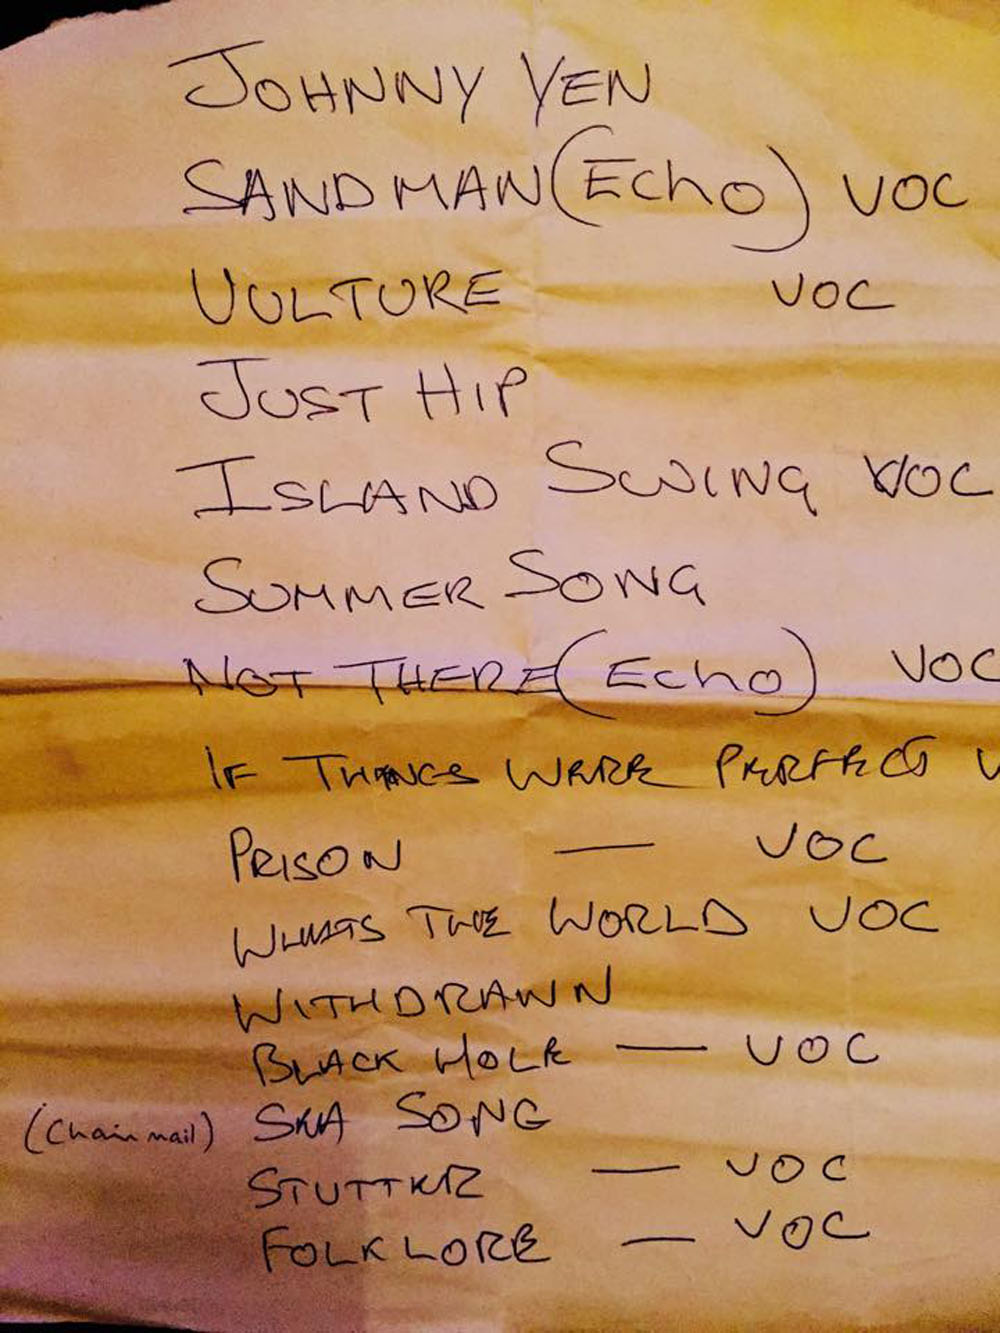 JOHNNY YEN
SANDMAN (Echo) VOC
VULTURE VOC
JUST HIP
ISLAND SWING VOC
SUMMER SONG
NOT THERE (Echo) VOC
IF THINGS WERE PERFECT V
PRISON — VOC
WHATS THE WORLD VOC
WITHDRAWN
BLACK HOLE — VOC
(Chain mail) SKA SONG
STUTTER — VOC
FOLKLORE — VOC